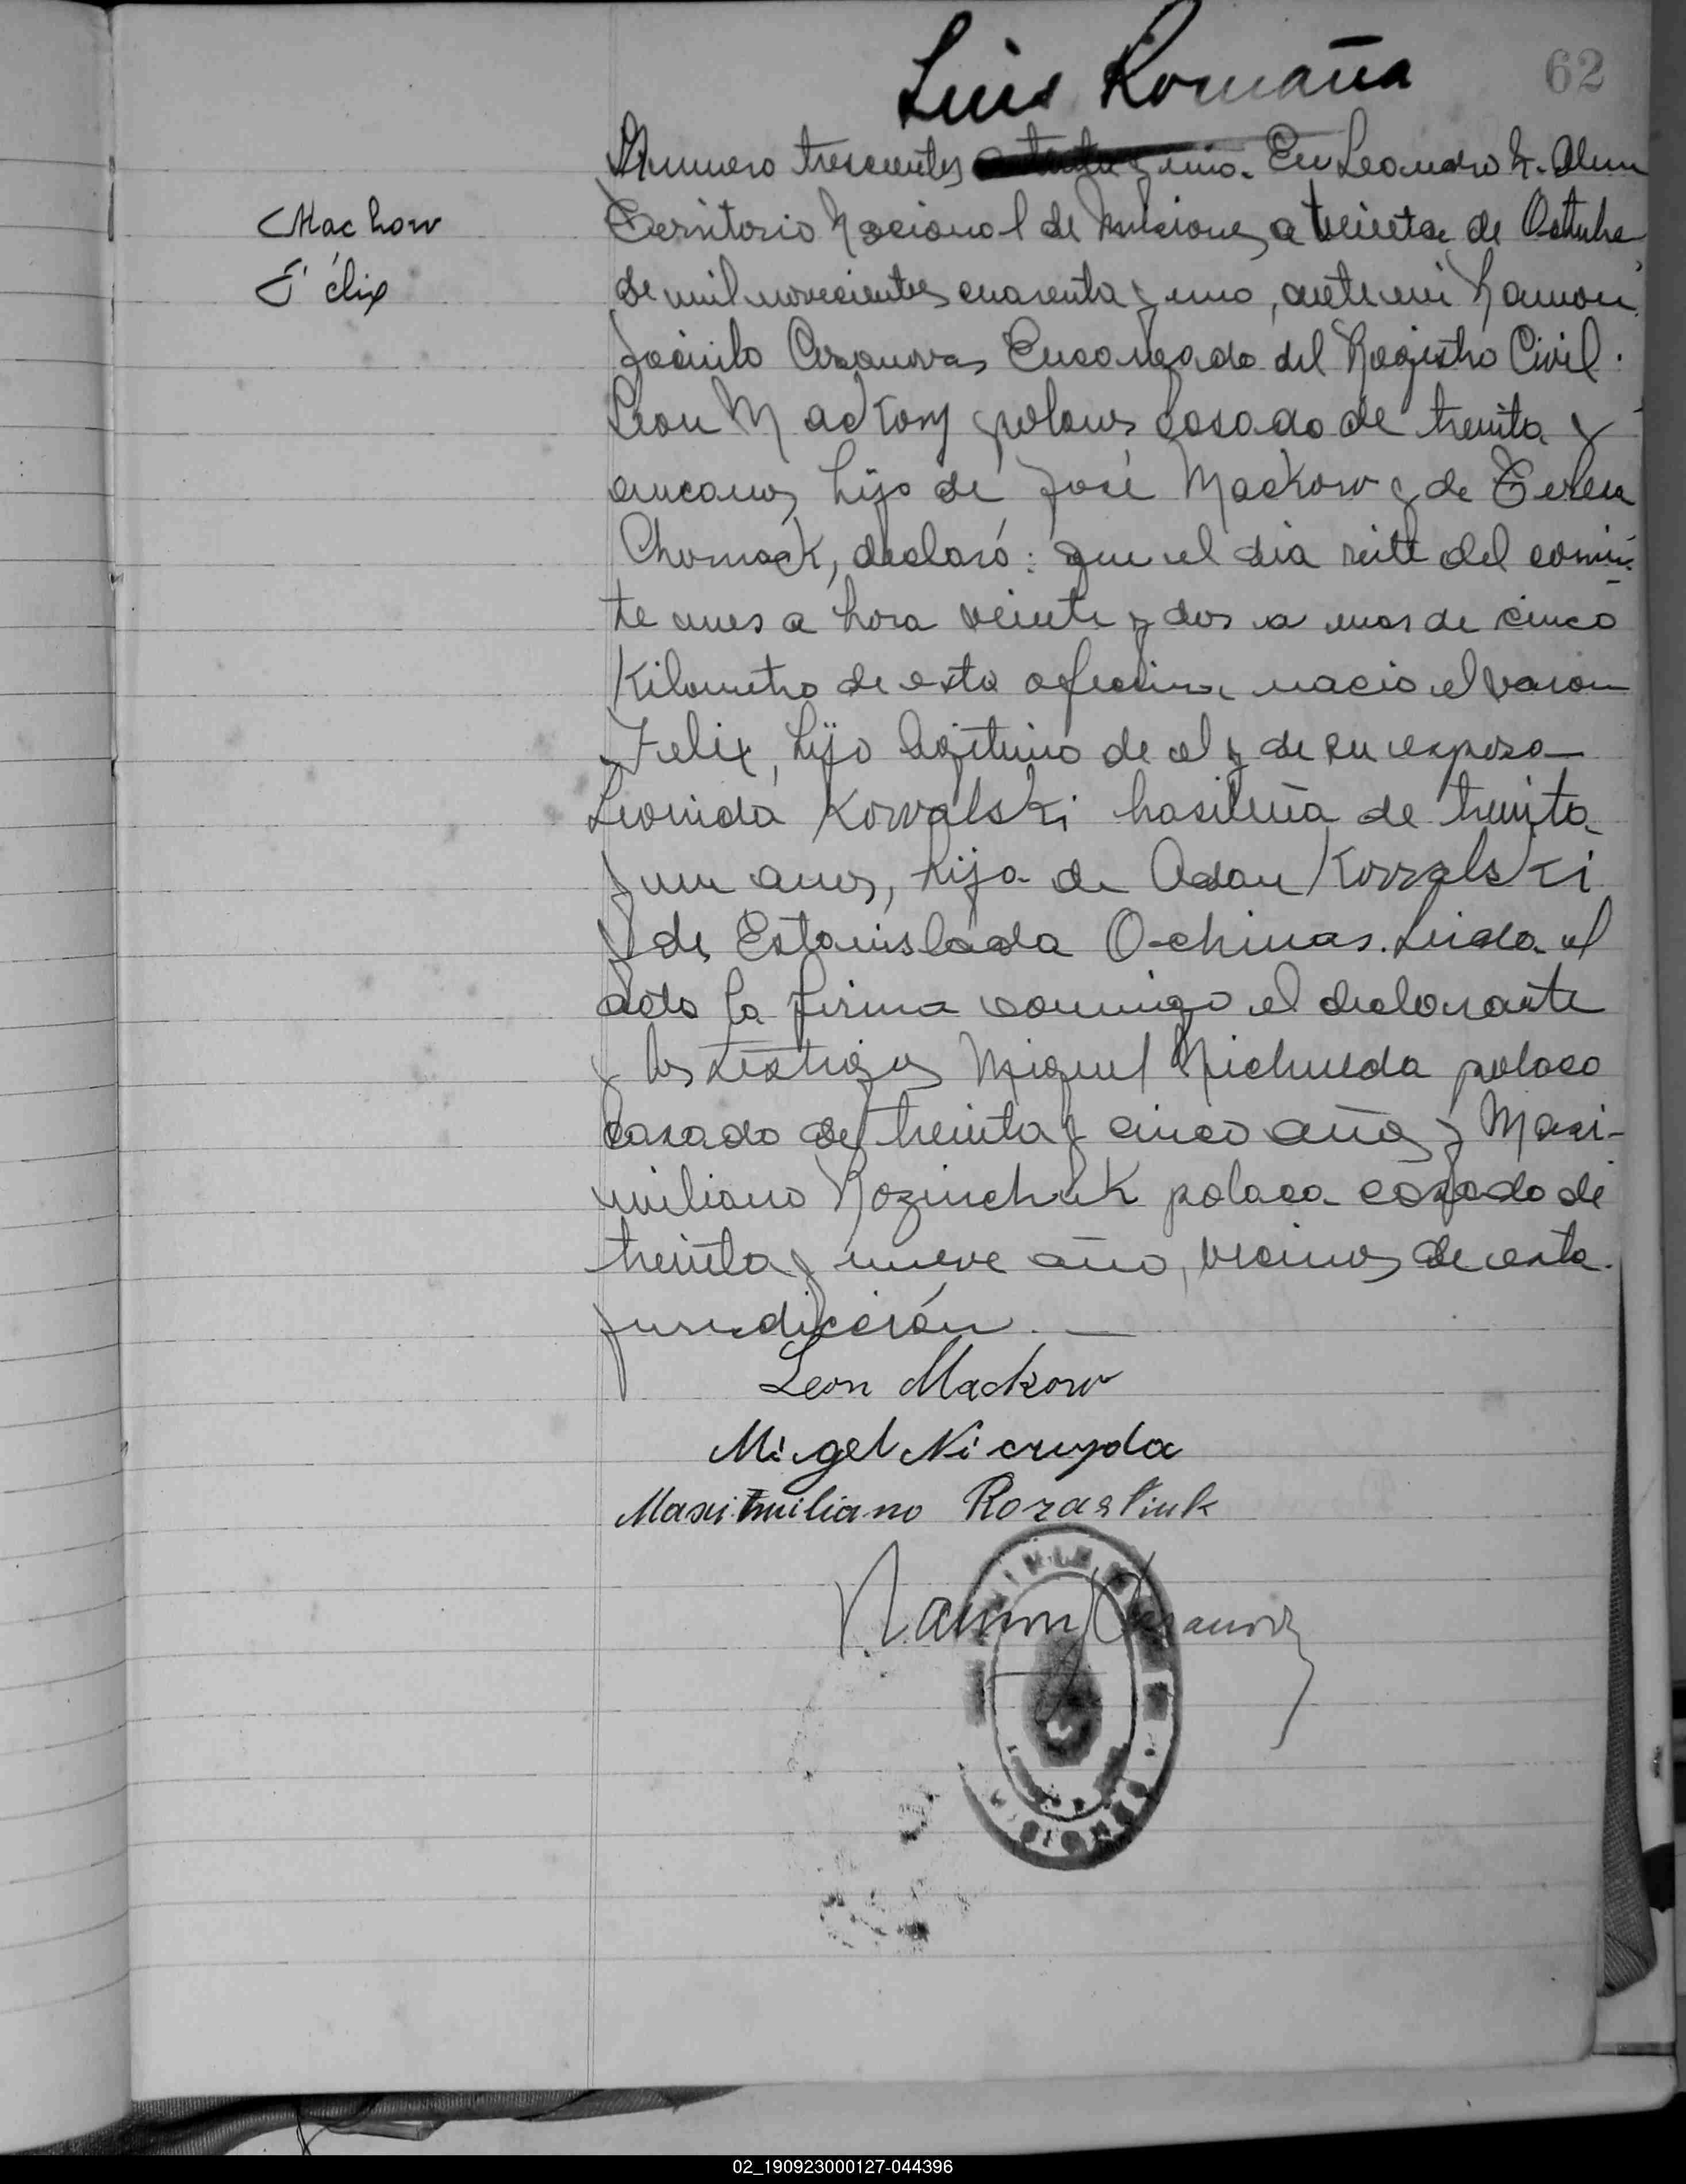 Luis Romaña
62
Numero trescientos y uno. En Leandro N. Alem
Machow
Territorio Nacional de Misiones, a treinta de Octubre
Félix
de mil novecientos cuarenta y uno, ante mi Ramon
Jacinto Casanovas Encargado del Registro Civil.
Leon Mackow polaco casado de treinta y
cinco años, hijo de José Mackow y de
Chomack, declaró: que el dia siete del corrien-
te mes a hora veinte y dos a mas de cinco
Kilometro de esta oficina nacio el varon
Felix, hijo legitimo de el y de su esposa
Leonida Kowalski brasileña de treinta
y un años, hija de Adan Kowalski
y de Estanislada Ochinas. Leida el
acta la firma conmigo el declarante
y los testigos Miguel Nichueda polaco
casado de treinta y cinco años y Maxi-
miliano Rozinchuk polaco casado de
treinta y nueve año, vecinos de esta
jurisdicción. —
Leon Mackow
Migel Nicruyda
Maximiliano Rozastiuk
Ramon J Casanovas
02_190923000127-044396